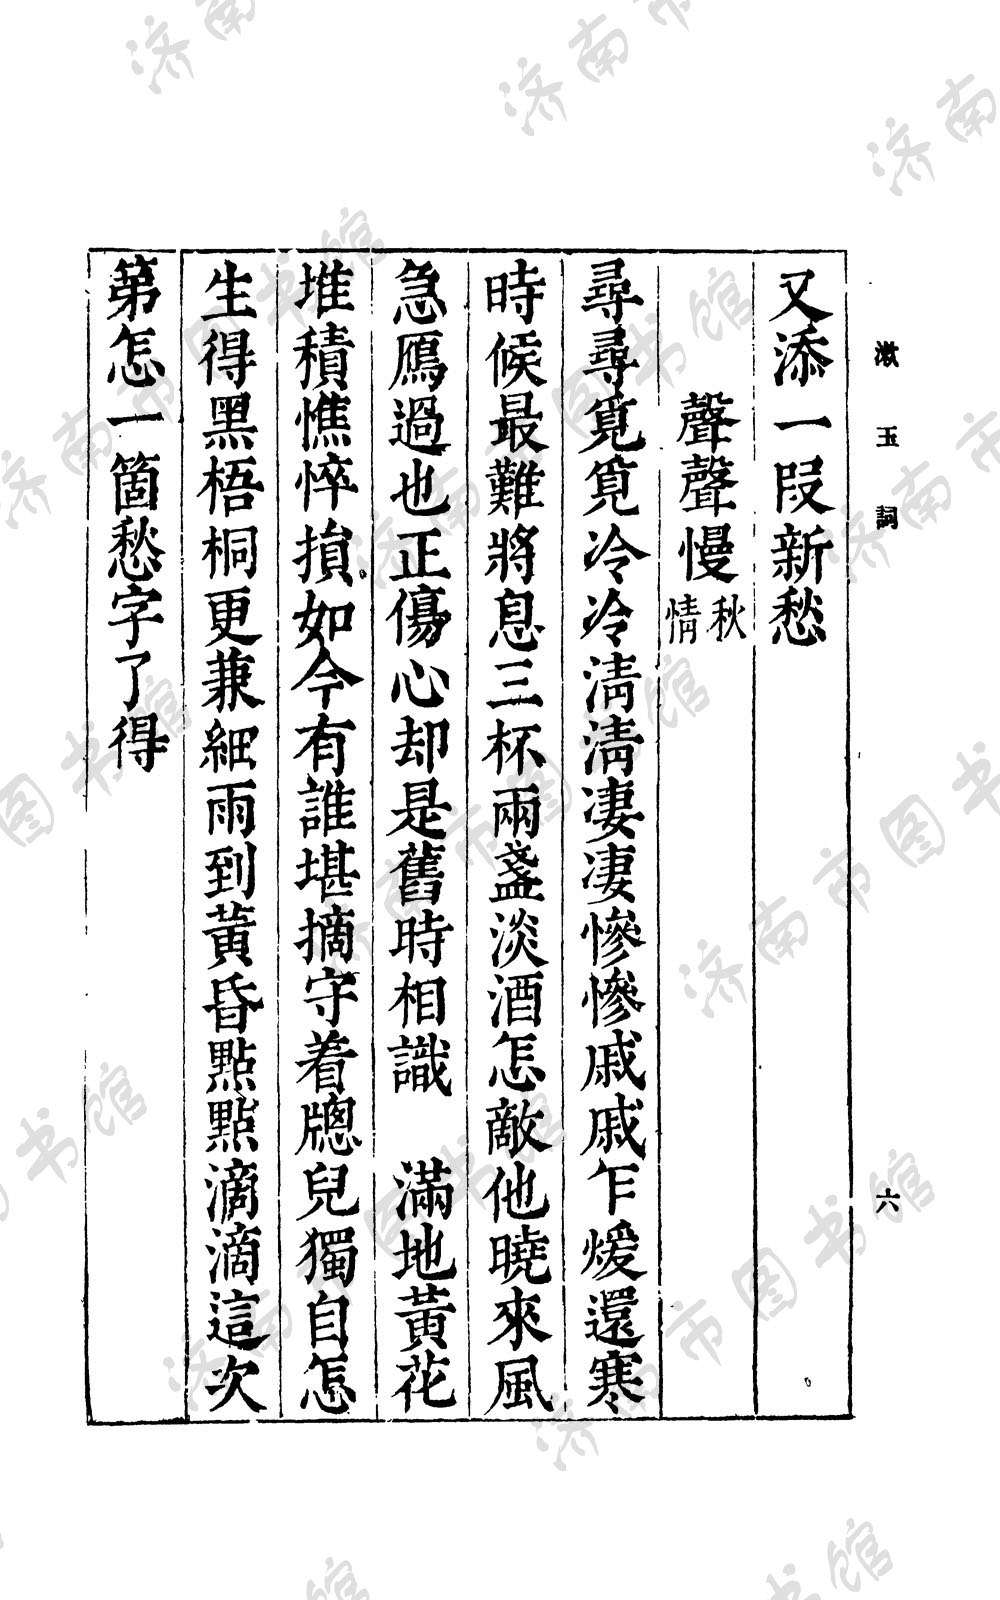 漱玉詞
六
又添一段新愁
聲聲慢 秋情
尋尋覓覓冷冷淸淸凄凄慘慘戚戚乍煖還寒
時候最難將息三杯兩盞淡酒怎敵他曉來風
急鴈過也正傷心却是舊時相識　滿地黃花
堆積憔悴損如今有誰堪摘守着牕兒獨自怎
生得黑梧桐更兼細雨到黃昏點點滴滴這次
第怎一箇愁字了得
济南市图书馆